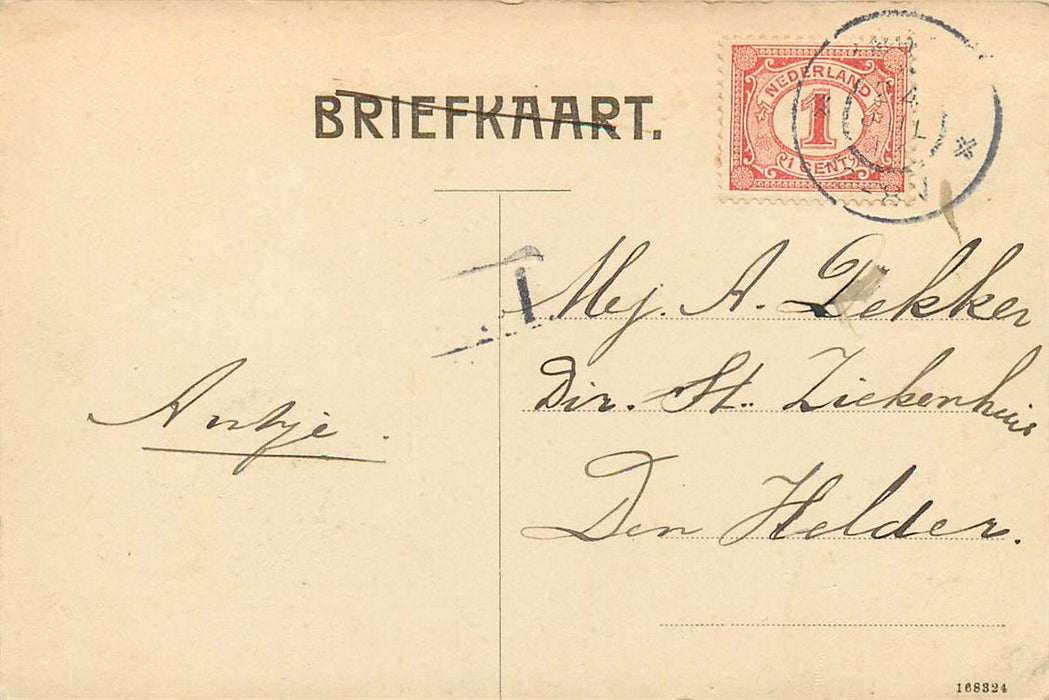 BRIEFKAART.
NEDERLAND
1
1 CENT
T
Mej. A. Dekker
Dir. St. Ziekenhuis
Antje.
Den Helder.
168324